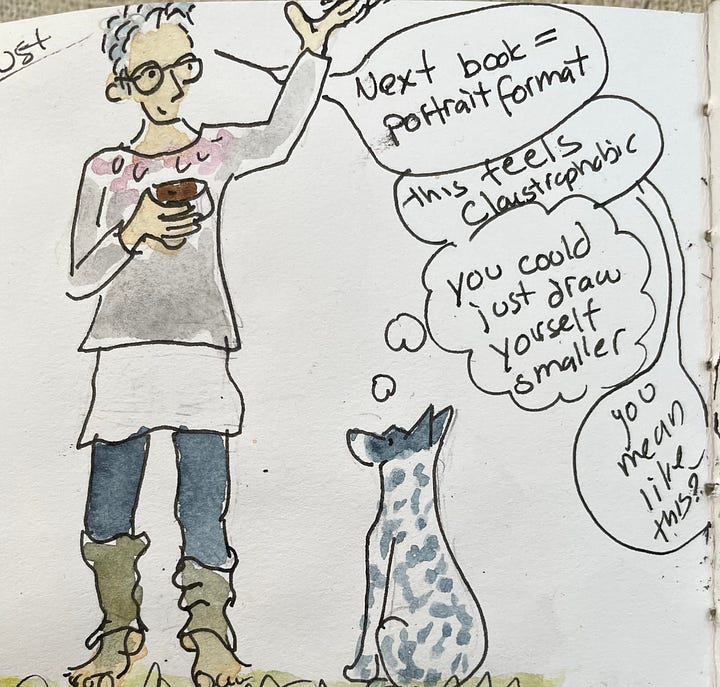 ust
Next book =
portrait format
this feels
Claustrophobic
you could
just draw
yourself
smaller
you
mean
like
this?